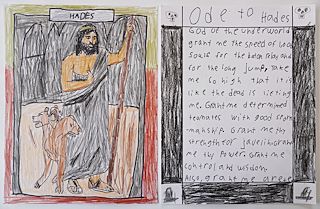 HADES
Ode to Hades
God of the underworld
grant me the speed of
souls for the
for the long jump. Take
me so high that it is
like the dead is lifting
me. Grant me determined
teamates with good sports
manship. Grant me the
strength of javelin. Grant
me thy Power. Grant me
control and wisdom.
Also, grant me arete